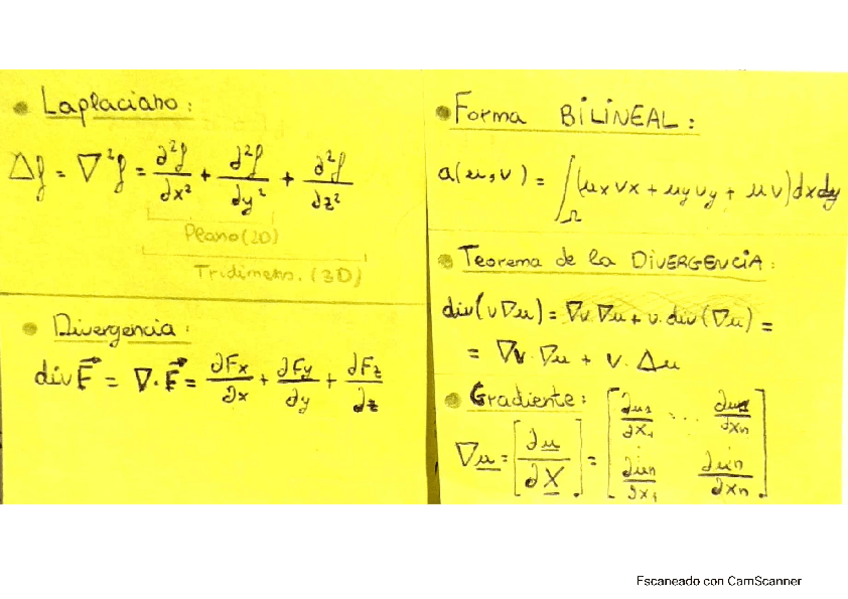 Laplaciano:
Δf = ∇²f = ∂²f/∂x² + ∂²f/∂y² + ∂²f/∂z²
Plano (2D)
Tridimens. (3D)
Divergencia:
div F⃗ = ∇·F⃗ = ∂Fx/∂x + ∂Fy/∂y + ∂Fz/∂z
Forma BILINEAL:
a(u,v) = ∫_Ω (ux vx + uy vy + u v) dx dy
Teorema de la DIVERGENCIA:
div(v∇u) = ∇v·∇u + v·div(∇u) =
= ∇v·∇u + v·Δu
Gradiente:
∇u = [∂u/∂X] = [∂u1/∂x1 ... ∂u1/∂xn
∂un/∂x1 ∂un/∂xn].
Escaneado con CamScanner